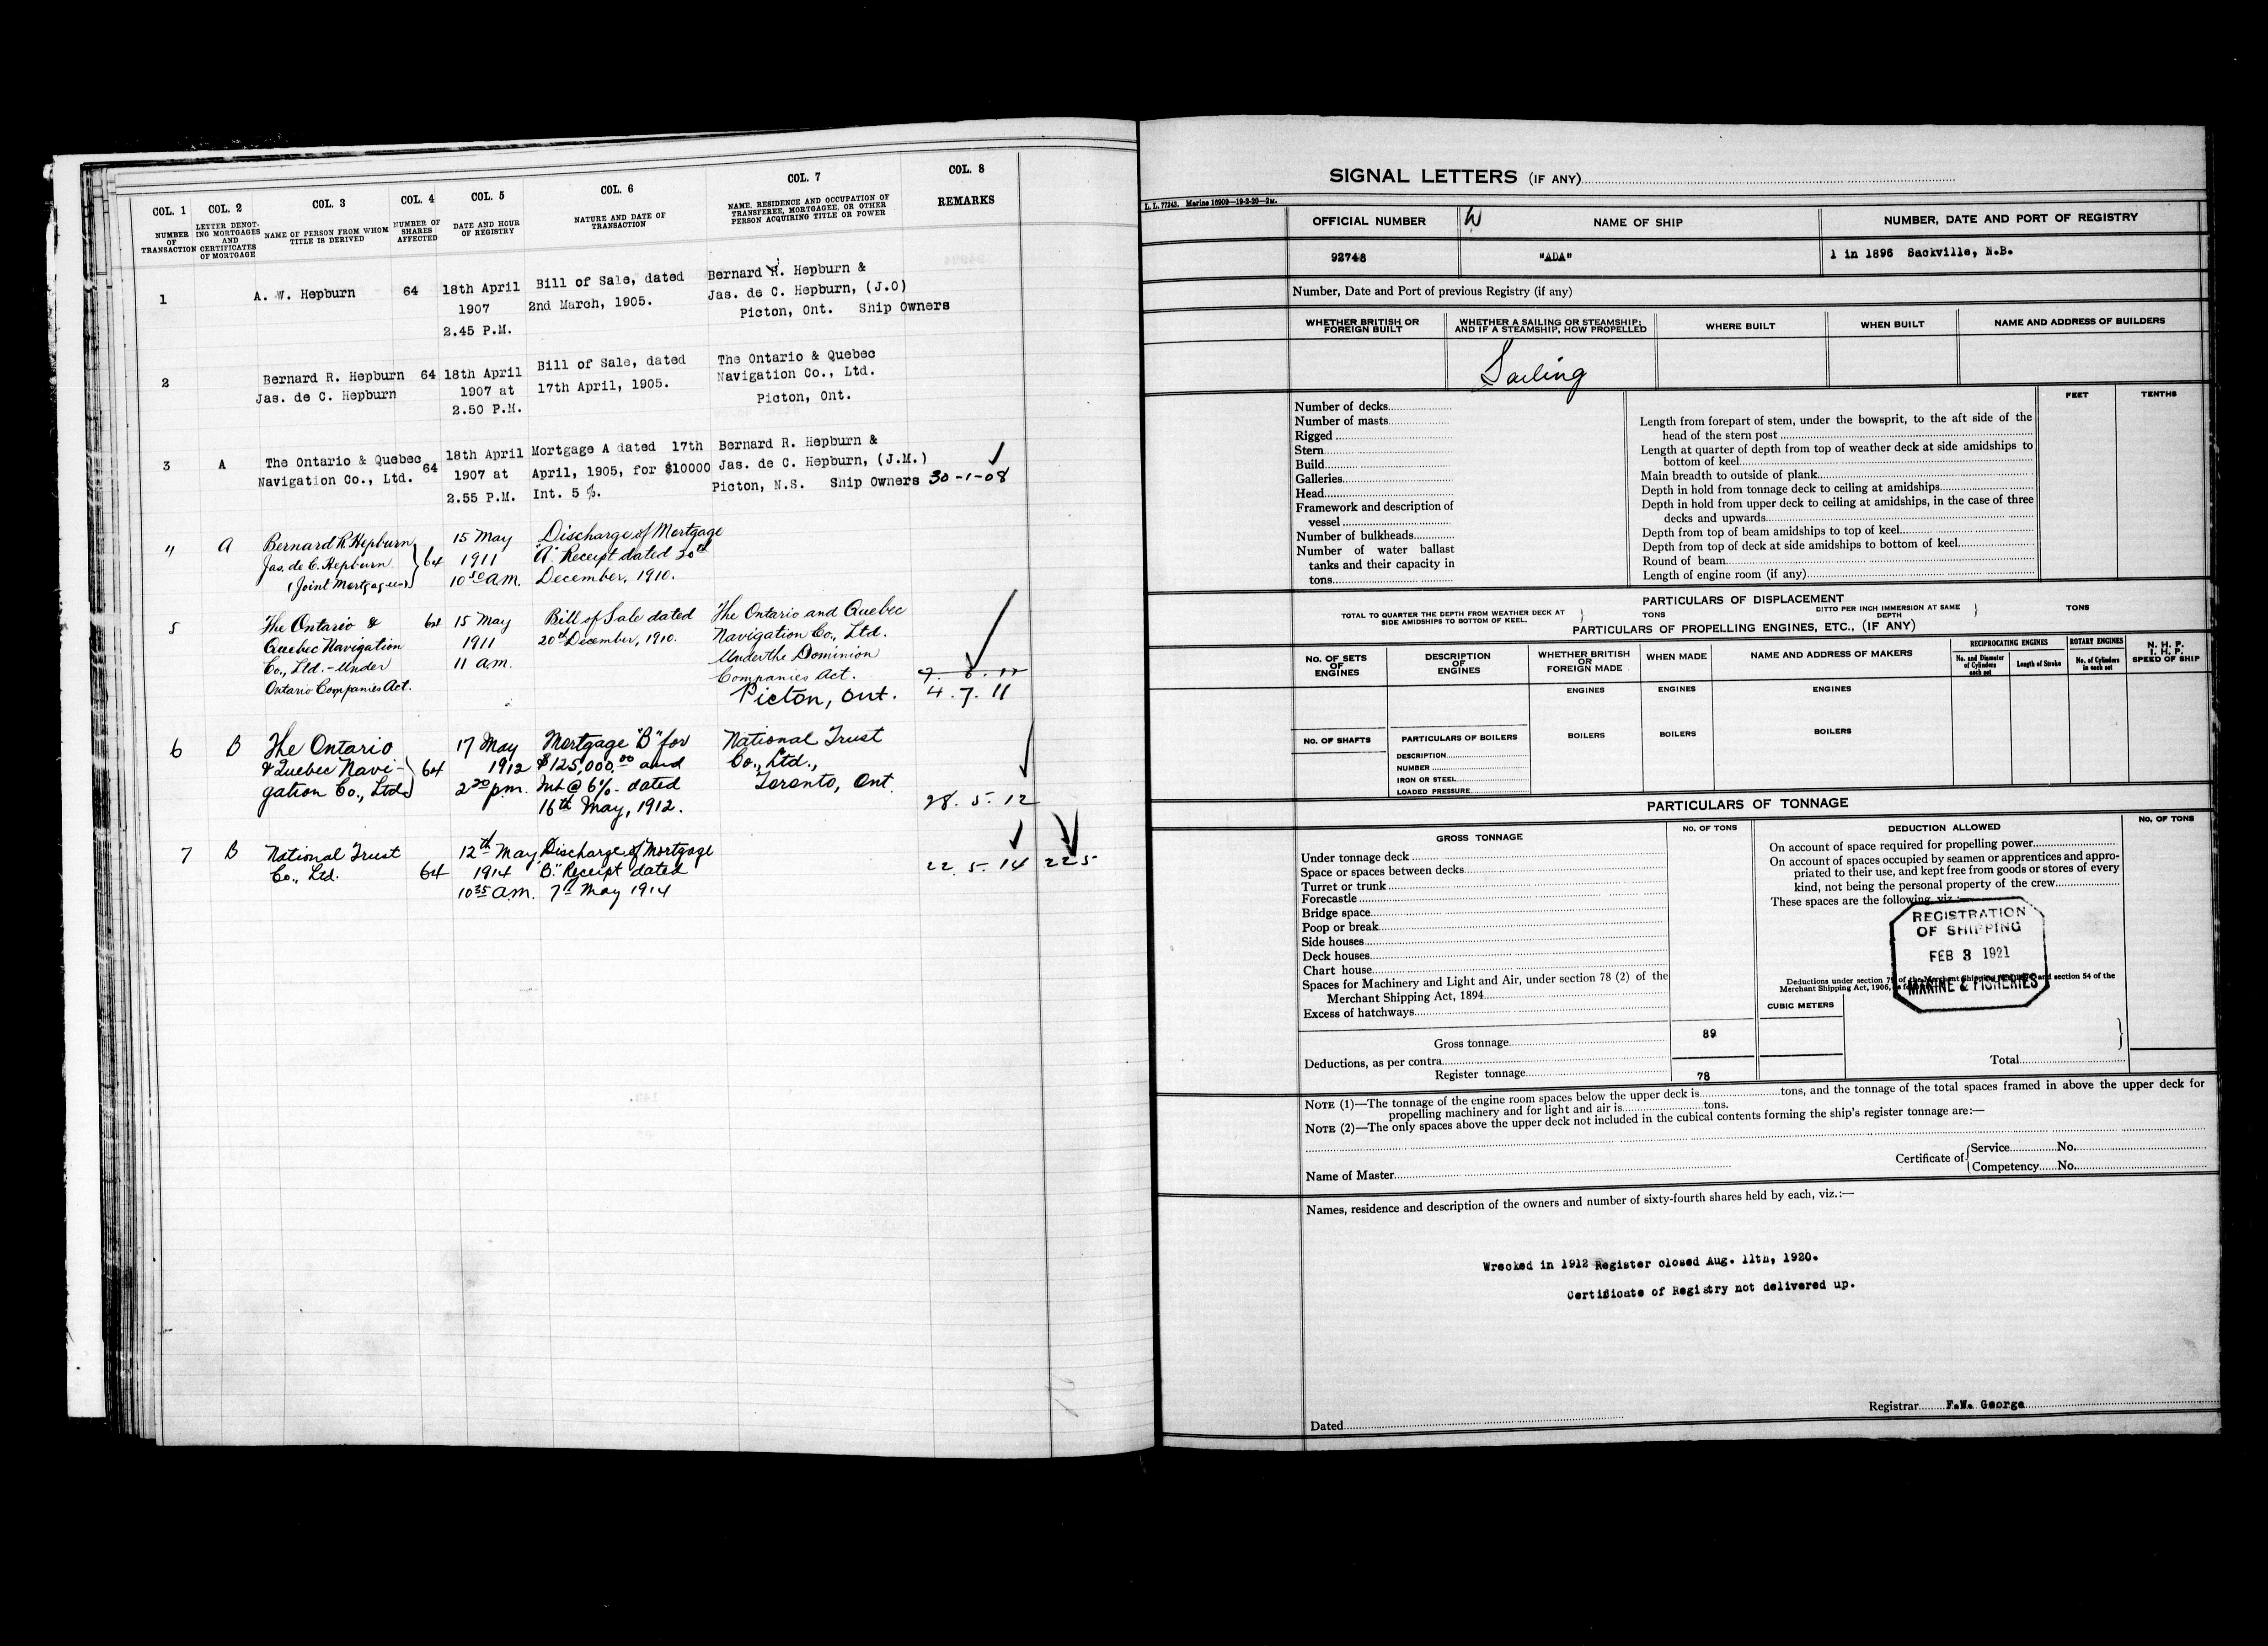 COL. 1 COL. 2 COL. 3 COL. 4 COL. 5 COL. 6 COL. 7 COL. 8
NUMBER OF TRANSACTION
LETTER DENOTING MORTGAGES AND CERTIFICATES OF MORTGAGE
NAME OF PERSON FROM WHOM TITLE IS DERIVED
NUMBER OF SHARES AFFECTED
DATE AND HOUR OF REGISTRY
NATURE AND DATE OF TRANSACTION
NAME, RESIDENCE AND OCCUPATION OF TRANSFEREE, MORTGAGEE, OR OTHER PERSON ACQUIRING TITLE OR POWER
REMARKS
1 A. W. Hepburn 64 18th April Bill of Sale, dated Bernard R. Hepburn &
1907 2nd March, 1905. Jas. de C. Hepburn, (J.O)
2.45 P.M. Picton, Ont. Ship Owners
2 Bernard R. Hepburn 64 18th April Bill of Sale, dated The Ontario & Quebec
Jas. de C. Hepburn 1907 at 17th April, 1905. Navigation Co., Ltd.
2.50 P.M. Picton, Ont.
3 A The Ontario & Quebec 64 18th April Mortgage A dated 17th Bernard R. Hepburn &
Navigation Co., Ltd. 1907 at April, 1905, for $10000 Jas. de C. Hepburn, (J.M.)
2.55 P.M. Int. 5 %. Picton, N.S. Ship Owners 30-1-08
" A Bernard R. Hepburn 64 15 May Discharge of Mortgage
Jas. de C. Hepburn 1911 "A" Receipt dated 20th
(Joint Mortgagees) 10 50 a.m. December, 1910.
5 The Ontario & 64 15 May Bill of Sale dated The Ontario and Quebec
Quebec Navigation 1911 20th December, 1910. Navigation Co., Ltd.
Co., Ltd. - Under 11 am. Under the Dominion
Ontario Companies Act. Companies Act.
Picton, Ont. 4.7.11
6 B The Ontario 17 May Mortgage "B" for National Trust
& Quebec Navi- 64 1912 $125,000.00 and Co., Ltd.,
gation Co., Ltd 2 20 p.m. Int @ 6% dated Toronto, Ont.
16th May, 1912. 28.5.12
7 B National Trust 12th May Discharge of Mortgage
Co., Ltd. 64 1914 "B." Receipt dated 22.5.14 225
10 35 a.m. 7th May 1914
SIGNAL LETTERS (IF ANY)
L. L. 77243. Marine 16909—19-2-20—2M.
OFFICIAL NUMBER NAME OF SHIP NUMBER, DATE AND PORT OF REGISTRY
92748 "ADA" 1 in 1896 Sackville, N.B.
Number, Date and Port of previous Registry (if any)
WHETHER BRITISH OR FOREIGN BUILT
WHETHER A SAILING OR STEAMSHIP; AND IF A STEAMSHIP, HOW PROPELLED
WHERE BUILT
WHEN BUILT
NAME AND ADDRESS OF BUILDERS
Sailing
FEET TENTHS
Number of decks
Number of masts
Rigged
Stern
Build
Galleries
Head
Framework and description of
vessel
Number of bulkheads
Number of water ballast
tanks and their capacity in
tons
Length from forepart of stem, under the bowsprit, to the aft side of the
head of the stern post
Length at quarter of depth from top of weather deck at side amidships to
bottom of keel
Main breadth to outside of plank
Depth in hold from tonnage deck to ceiling at amidships
Depth in hold from upper deck to ceiling at amidships, in the case of three
decks and upwards
Depth from top of beam amidships to top of keel
Depth from top of deck at side amidships to bottom of keel
Round of beam
Length of engine room (if any)
PARTICULARS OF DISPLACEMENT
TOTAL TO QUARTER THE DEPTH FROM WEATHER DECK AT SIDE AMIDSHIPS TO BOTTOM OF KEEL. } TONS DITTO PER INCH IMMERSION AT SAME DEPTH } TONS
PARTICULARS OF PROPELLING ENGINES, ETC., (IF ANY)
NO. OF SETS OF ENGINES
DESCRIPTION OF ENGINES
WHETHER BRITISH OR FOREIGN MADE
WHEN MADE
NAME AND ADDRESS OF MAKERS
RECIPROCATING ENGINES
No. and Diameter of Cylinders each set
Length of Stroke
ROTARY ENGINES
No. of Cylinders in each set
N. H. P.
I. H. P.
SPEED OF SHIP
ENGINES ENGINES ENGINES
NO. OF SHAFTS PARTICULARS OF BOILERS BOILERS BOILERS BOILERS
DESCRIPTION
NUMBER
IRON OR STEEL
LOADED PRESSURE
PARTICULARS OF TONNAGE
GROSS TONNAGE NO. OF TONS DEDUCTION ALLOWED NO. OF TONS
Under tonnage deck
Space or spaces between decks
Turret or trunk
Forecastle
Bridge space
Poop or break
Side houses
Deck houses
Chart house
Spaces for Machinery and Light and Air, under section 78 (2) of the
Merchant Shipping Act, 1894
Excess of hatchways
Gross tonnage 89
Deductions, as per contra
Register tonnage 78
On account of space required for propelling power
On account of spaces occupied by seamen or apprentices and appro-
priated to their use, and kept free from goods or stores of every
kind, not being the personal property of the crew
These spaces are the following, viz.:—
REGISTRATION
OF SHIPPING
FEB 3 1921
MARINE & FISHERIES
Deductions under section 79 of the Merchant Shipping and section 54 of the
Merchant Shipping Act, 1906,
CUBIC METERS
Total
NOTE (1)—The tonnage of the engine room spaces below the upper deck is tons, and the tonnage of the total spaces framed in above the upper deck for
propelling machinery and for light and air is tons.
NOTE (2)—The only spaces above the upper deck not included in the cubical contents forming the ship's register tonnage are:—
Name of Master
Certificate of { Service No.
Competency No.
Names, residence and description of the owners and number of sixty-fourth shares held by each, viz.:—
Wrecked in 1912 Register closed Aug. 11th, 1920.
Certificate of Registry not delivered up.
Dated
Registrar F.W. George